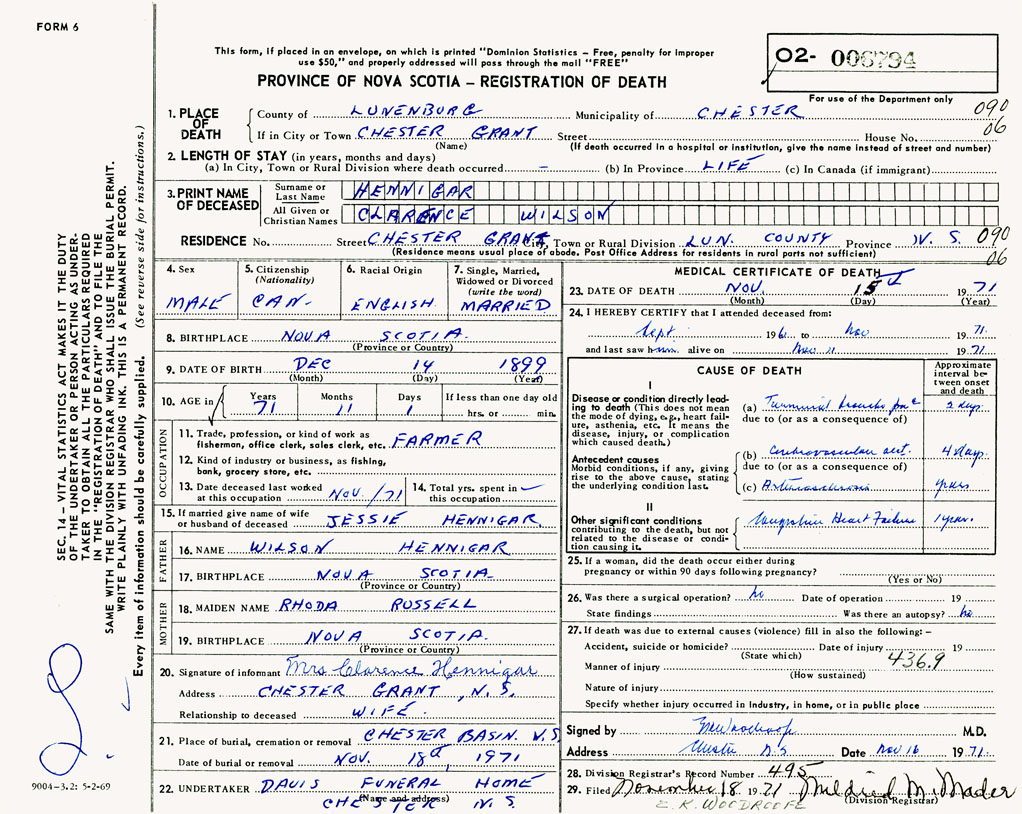 FORM 6
This form, if placed in an envelope, on which is printed "Dominion Statistics – Free, penalty for improper
use $50," and properly addressed will pass through the mail "FREE"
O2- 006794
PROVINCE OF NOVA SCOTIA – REGISTRATION OF DEATH
For use of the Department only
1. PLACE OF DEATH
County of LUNENBURG Municipality of CHESTER 090
If in City or Town CHESTER GRANT Street House No. 06
(Name) (If death occurred in a hospital or institution, give the name instead of street and number)
2. LENGTH OF STAY (in years, months and days)
(a) In City, Town or Rural Division where death occurred – (b) In Province LIFE (c) In Canada (if immigrant)
3. PRINT NAME OF DECEASED
Surname or Last Name HENNIGAR
All Given or Christian Names CLARENCE WILSON
RESIDENCE No. Street CHESTER GRANT City, Town or Rural Division LUN. COUNTY Province N. S. 090
(Residence means usual place of abode. Post Office Address for residents in rural parts not sufficient) 06
4. Sex MALE
5. Citizenship (Nationality) CAN.
6. Racial Origin ENGLISH
7. Single, Married, Widowed or Divorced (write the word) MARRIED
8. BIRTHPLACE NOVA SCOTIA.
(Province or Country)
9. DATE OF BIRTH DEC 14 1899
(Month) (Day) (Year)
10. AGE in Years 71 Months 11 Days 1 If less than one day old hrs. or min.
OCCUPATION
11. Trade, profession, or kind of work as fisherman, office clerk, sales clerk, etc. FARMER
12. Kind of industry or business, as fishing, bank, grocery store, etc.
13. Date deceased last worked at this occupation NOV./71
14. Total yrs. spent in this occupation –
15. If married give name of wife or husband of deceased JESSIE HENNIGAR
FATHER
16. NAME WILSON HENNIGAR
17. BIRTHPLACE NOVA SCOTIA.
(Province or Country)
MOTHER
18. MAIDEN NAME RHODA RUSSELL
19. BIRTHPLACE NOVA SCOTIA.
(Province or Country)
20. Signature of informant Mrs Clarence Hennigar
Address CHESTER GRANT, N. S.
Relationship to deceased WIFE.
21. Place of burial, cremation or removal CHESTER BASIN. N.S.
Date of burial or removal NOV. 18th 1971
22. UNDERTAKER DAVIS FUNERAL HOME
(Name and address) CHESTER N. S.
MEDICAL CERTIFICATE OF DEATH
23. DATE OF DEATH NOV. 15th 1971
(Month) (Day) (Year)
24. I HEREBY CERTIFY that I attended deceased from:
Sept. 196 to Nov 1971.
and last saw him alive on Nov 11 1971.
CAUSE OF DEATH
Approximate interval between onset and death
I
Disease or condition directly leading to death (This does not mean the mode of dying, e.g., heart failure, asthenia, etc. It means the disease, injury, or complication which caused death.)
(a) Terminal broncho pne 2 days
due to (or as a consequence of)
Antecedent causes
Morbid conditions, if any, giving rise to the above cause, stating the underlying condition last.
(b) Cerebrovascular acct. 4 days
due to (or as a consequence of)
(c) Arteriosclerosis years
II
Other significant conditions contributing to the death, but not related to the disease or condition causing it.
Congestive Heart Failure 1 year.
25. If a woman, did the death occur either during pregnancy or within 90 days following pregnancy?
(Yes or No)
26. Was there a surgical operation? No Date of operation 19
State findings Was there an autopsy? No
27. If death was due to external causes (violence) fill in also the following: –
Accident, suicide or homicide? Date of injury 19
(State which) 436.9
Manner of injury
(How sustained)
Nature of injury
Specify whether injury occurred in industry, in home, or in public place
Signed by M.D.
Address Chester N.S Date Nov 16 1971.
28. Division Registrar's Record Number 495
29. Filed November 18 1971 Mildred M. Mader
(Division Registrar)
E. K. WOODROOFE
SEC. 14 – VITAL STATISTICS ACT MAKES IT THE DUTY
OF THE UNDERTAKER OR PERSON ACTING AS UNDERTAKER TO OBTAIN ALL THE PARTICULARS REQUIRED
IN THE "REGISTRATION OF DEATH" AND TO FILE THE
SAME WITH THE DIVISION REGISTRAR WHO SHALL ISSUE THE BURIAL PERMIT.
WRITE PLAINLY WITH UNFADING INK. THIS IS A PERMANENT RECORD.
Every item of information should be carefully supplied. (See reverse side for instructions.)
9004-3.2: 5-2-69